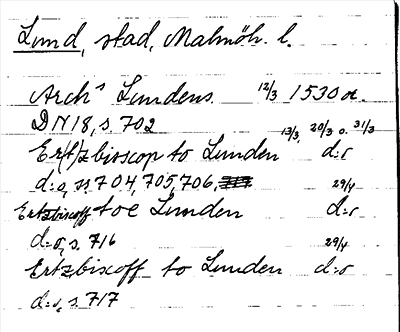 Lund, stad, Malmöh. l.
Arch^s Lundens. 12/3 1530 or.
DN 18, s. 702
Er(t)zbisscop to Lunden 13/3, 20/3 o. 31/3 d:o
d:o, ss 704, 705, 706,
Ertzbiscoff toe Lunden 29/4 d:o
d:o, s. 716
Ertzbiscoff to Lunden 29/4 d:o
d:o, s. 717